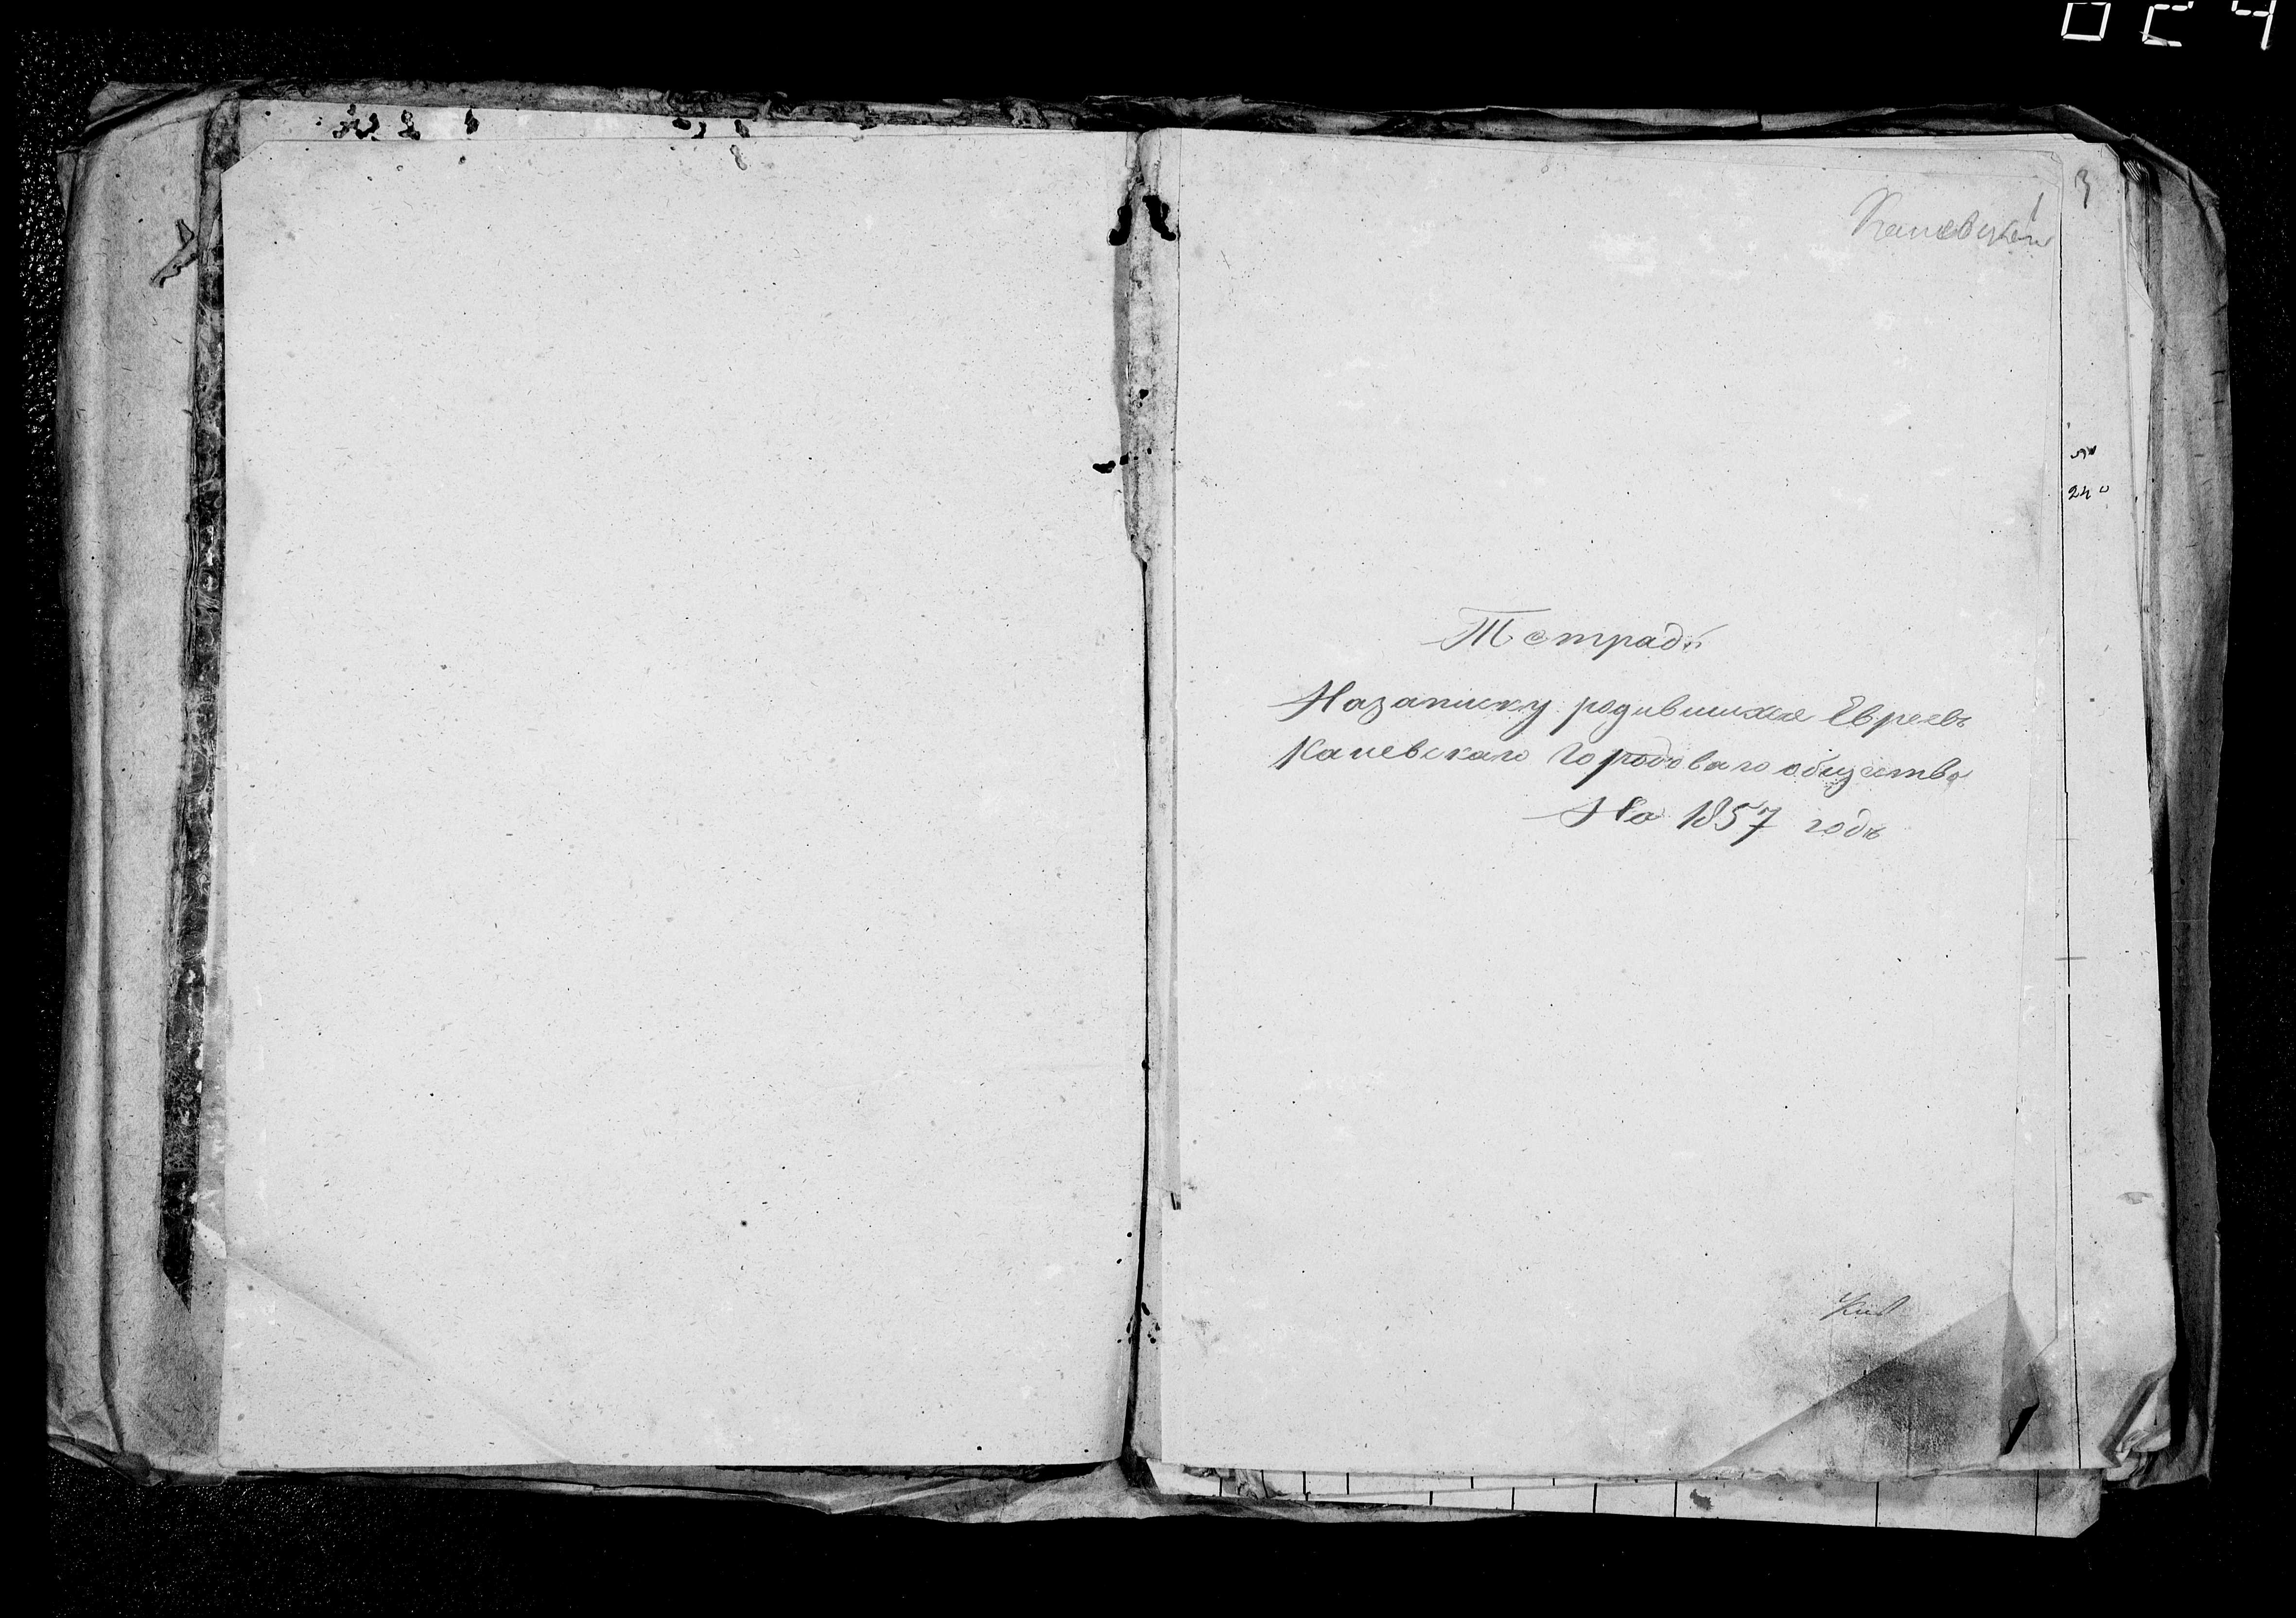 024
3
1
Каневскаго
240
Тетрадь
Назаписку родившихся Евреевъ
Каневскаго Городоваго общества
На 1857 годъ